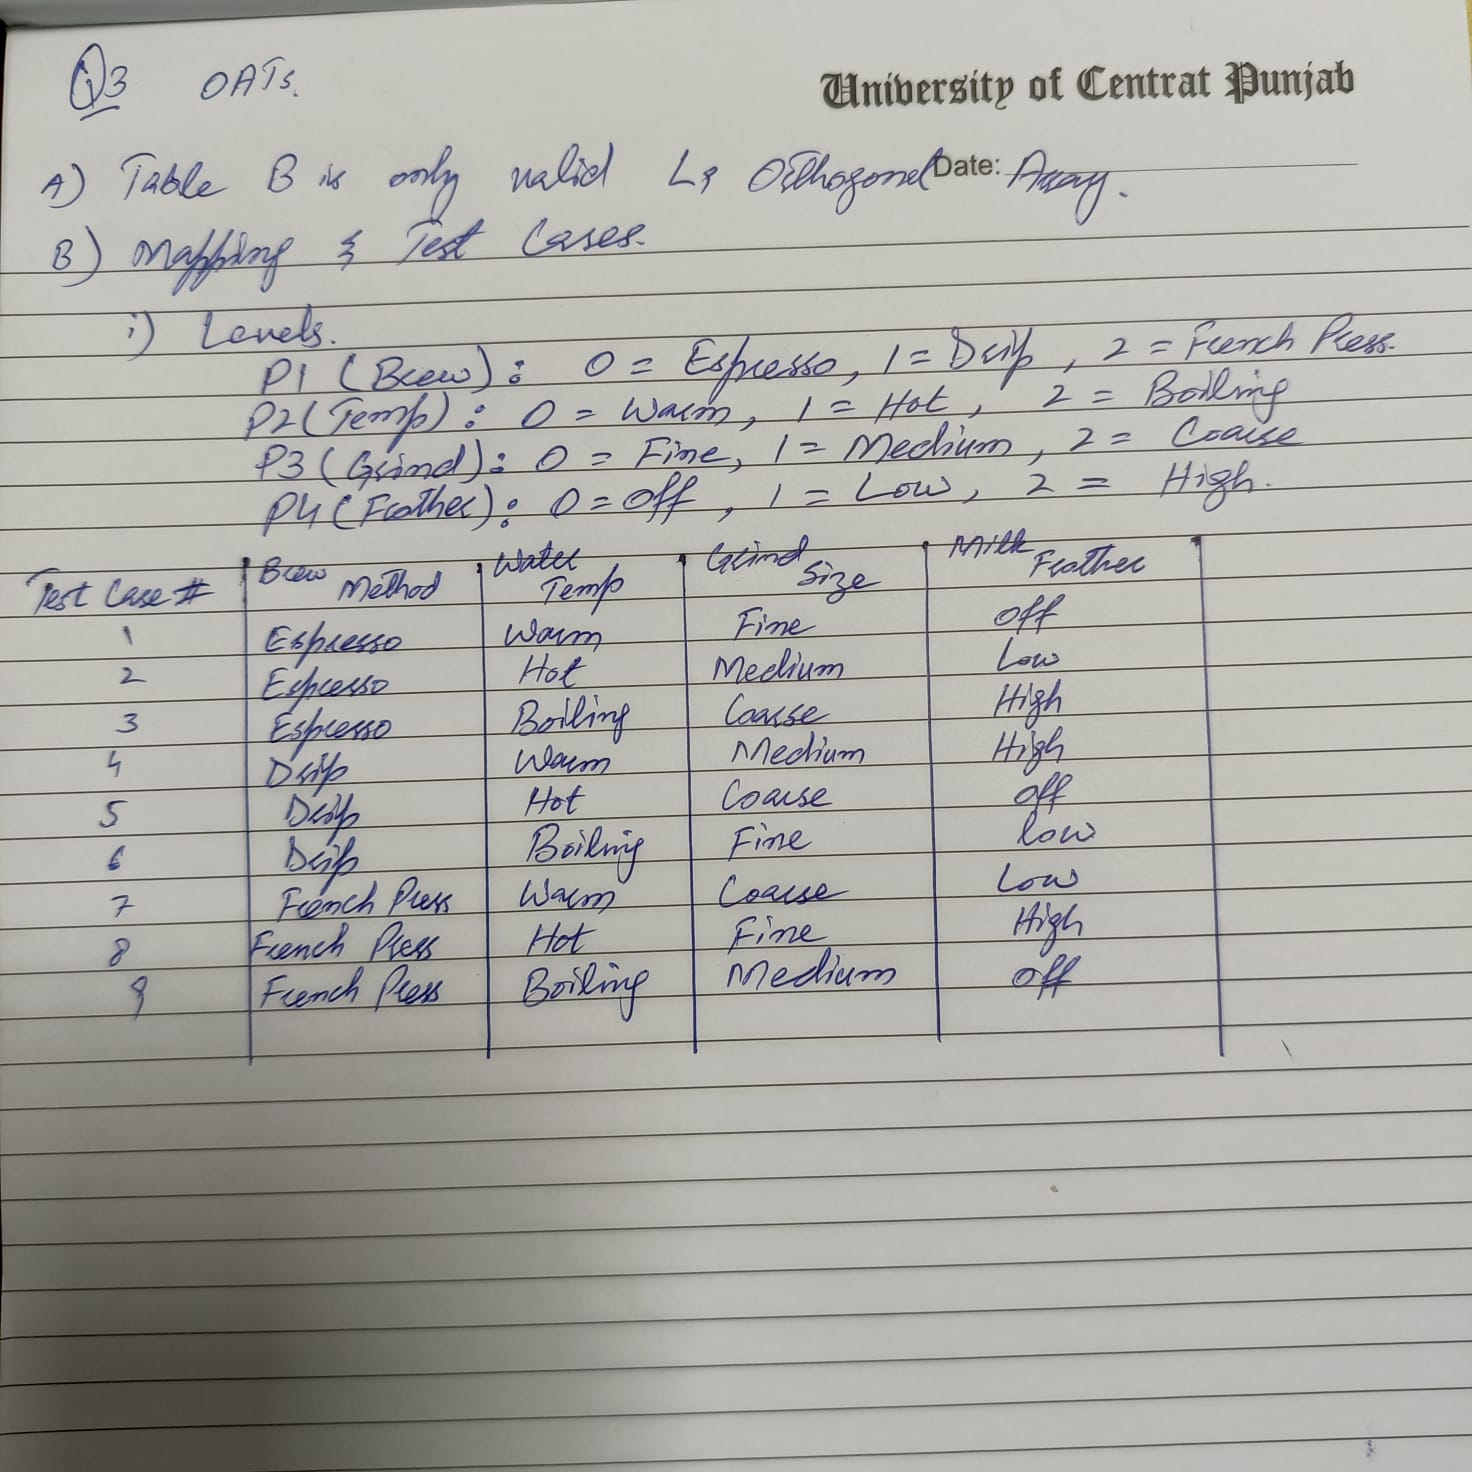 Q3 OATs.
University of Central Punjab
Date:
A) Table B is only valid L9 Orthogonal Array.
B) Mapping & Test Cases.
i) Levels.
P1 (Brew): 0 = Espresso, 1 = Drip, 2 = French Press.
P2 (Temp): 0 = Warm, 1 = Hot, 2 = Boiling
P3 (Grind): 0 = Fine, 1 = Medium, 2 = Coarse
P4 (Frother): 0 = off, 1 = Low, 2 = High.
Test Case # Brew Method Water Temp Grind Size Milk Frother
1 Espresso Warm Fine off
2 Espresso Hot Medium Low
3 Espresso Boiling Coarse High
4 Drip Warm Medium High
5 Drip Hot Coarse off
6 Drip Boiling Fine low
7 French Press Warm Coarse Low
8 French Press Hot Fine High
9 French Press Boiling Medium off